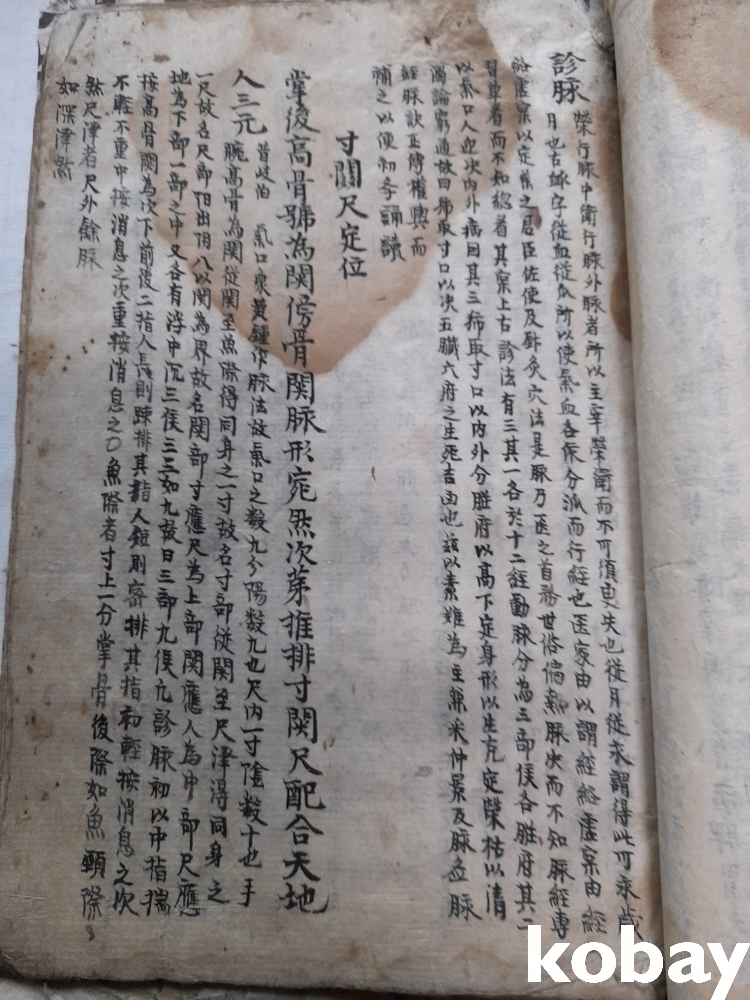 診脉
榮行脉中衛行脉外脉者所以主宰榮衛而不可須臾失也從月從永謂得此可永歲
月也古脉字從血從瓜所以使氣血各依分派而行經也医家由以謂經絡虛寀由經
絡虛寀以定藥之君臣佐使及針灸穴法是脉乃医之首務世俗偏熟脉决而不知脉經專
習重者而不知総着其寀上古診法有三其一各於十二經動脉分為三部候各脏府其二
以氣口人迎决内外病因其三獨取寸口以内外分脏府以高下定身形以生克定榮枯以清
濁論窮通故曰獨取寸口以决五臟六府之生死吉凶也兹以素難為主兼采仲景及脉血脉
經脉訣正傳權輿而
補之以便初孝誦讀
寸關尺定位
掌後高骨號為関傍骨関脉形宛然次第推排寸関尺配合天地
人三元
昔岐伯 氣口象黃鍾作脉法故氣口之数九分陽数九也尺内一寸陰数十也手
腕高骨為関從関至魚際得同身之一寸故名寸部從関至尺澤得同身之
一尺故名尺部陽出陰入以関為界故名関部寸應天為上部関應人為中部尺應
地為下部一部之中又各有浮中沉三侯三三如九故曰三部九侯凢診脉初以中指揣
按高骨関為次下前後二指人長則踈排其指人短則密排其指初輕按消息之次
不輕不重中按消息之次重按消息之〇魚際者寸上一分掌骨後際如魚頸際
然尺澤者尺外餘脉
如深澤然
kobay